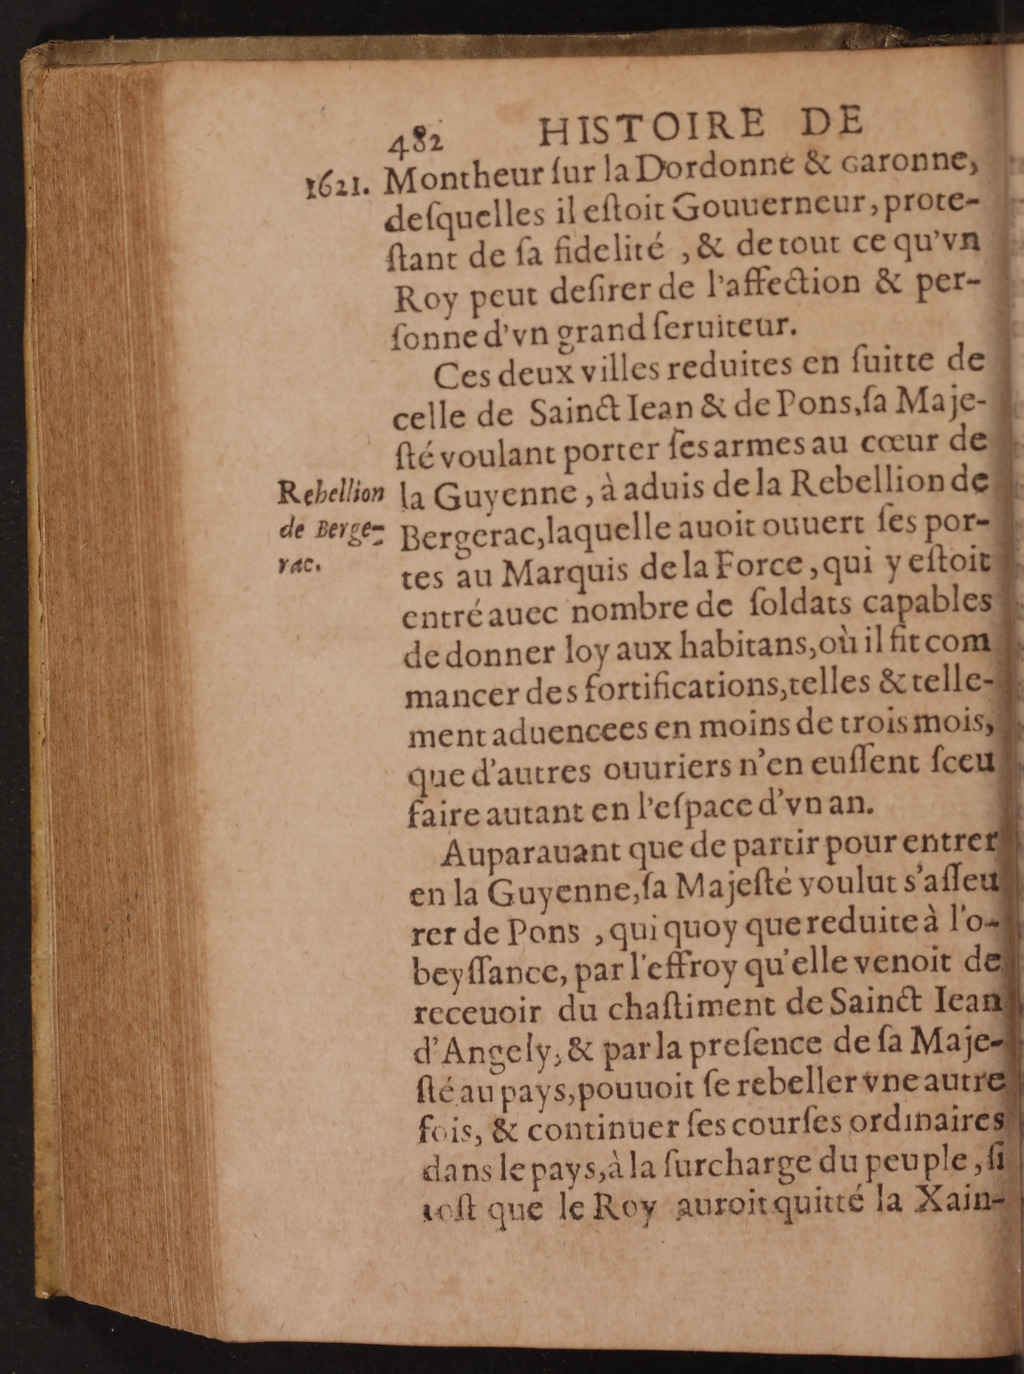 482 HISTOIRE DE
1621. Montheur ſur la Dordonne & Garonne,
deſquelles il eſtoit Gouuerneur, prote-
ſtant de ſa fidelité , & de tout ce qu'vn
Roy peut deſirer de l'affection & per-
ſonne d'vn grand ſeruiteur.
Ces deux villes reduites en ſuitte de
celle de Sainct Iean & de Pons, ſa Maje-
ſté voulant porter ſes armes au cœur de
Rebellion la Guyenne , à aduis de la Rebellion de
de Berge- Bergerac, laquelle auoit ouuert ſes por-
rac. tes au Marquis de la Force , qui y eſtoit
entré auec nombre de ſoldats capables
de donner loy aux habitans, où il fit com
mancer des fortifications, telles & telle-
ment aduencees en moins de trois mois,
que d'autres ouuriers n'en euſſent ſceu
faire autant en l'eſpace d'vn an.
Auparauant que de partir pour entrer
en la Guyenne, ſa Majeſté voulut s'aſſeu
rer de Pons , qui quoy que reduite à l'o-
beyſſance, par l'effroy qu'elle venoit de
receuoir du chaſtiment de Sainct Iean
d'Angely, & par la preſence de ſa Maje-
ſté au pays, pouuoit ſe rebeller vne autre
fois, & continuer ſes courſes ordinaires
dans le pays, à la ſurcharge du peuple , ſi
toſt que le Roy auroit quitté la Xain-